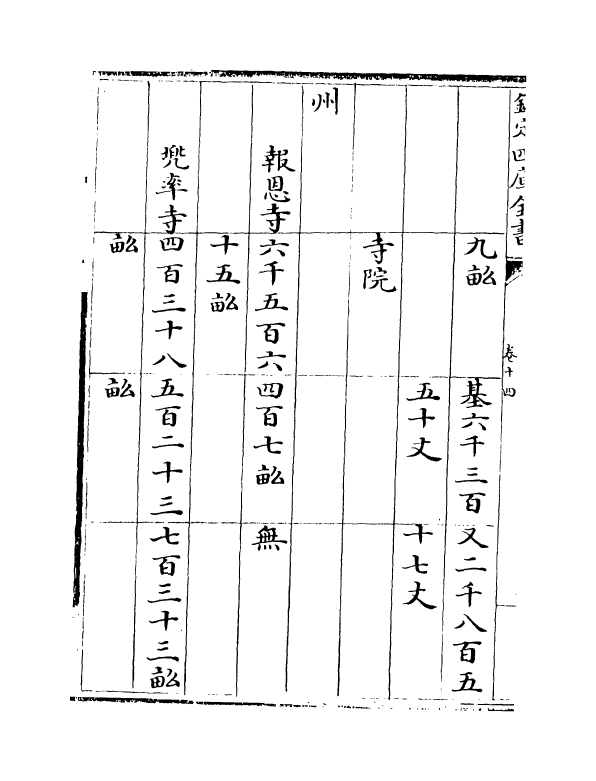 欽定四庫全書 卷十四
九畝 基六千三百 又二千八百五
五十丈 十七丈
寺院
州
報恩寺 六千五百六 四百七畝 無
十五畝
兜率寺 四百三十八 五百二十三 七百三十三畝
畝 畝